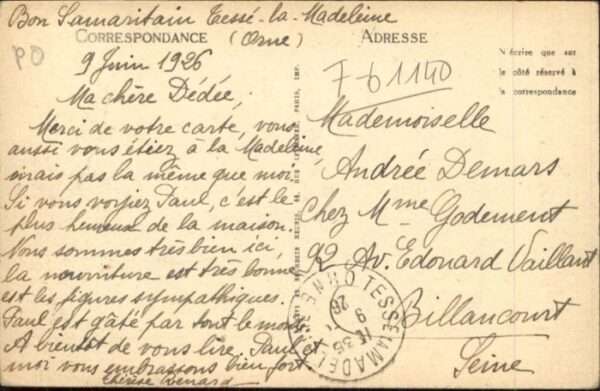 Bon Samaritain Tessé-la-Madeleine
(Orne)
CORRESPONDANCE
PO
9 Juin 1926
Ma chère Dédée,
Merci de votre carte, vous
aussi vous étiez à la Madeleine,
mais pas la même que moi.
Si vous voyiez Paul, c'est le
plus heureux de la maison.
Nous sommes très bien ici,
la nourriture est très bonne
est les figures sympathiques.
Paul est gâté par tout le monde.
A bientôt de vous lire, Paul et
moi vous embrassons bien fort
Thérèse
ADRESSE
N'écrire que sur
le côté réservé à
la correspondance
7-61140
Mademoiselle
Andrée Demars
Chez Mme Godement
92 Av. Edouard Vaillant
Billancourt
Seine
PARIS, IMP.
TESSÉ LA MADELEINE
ORNE
9
26